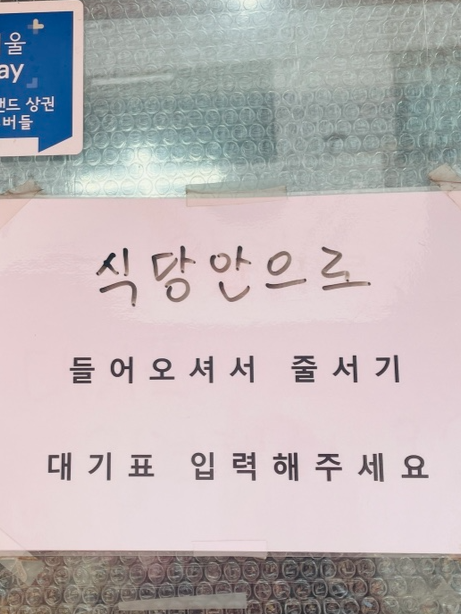 ay
상권
버들
식당안으로
들어오셔서 줄서기
대기표 입력해주세요